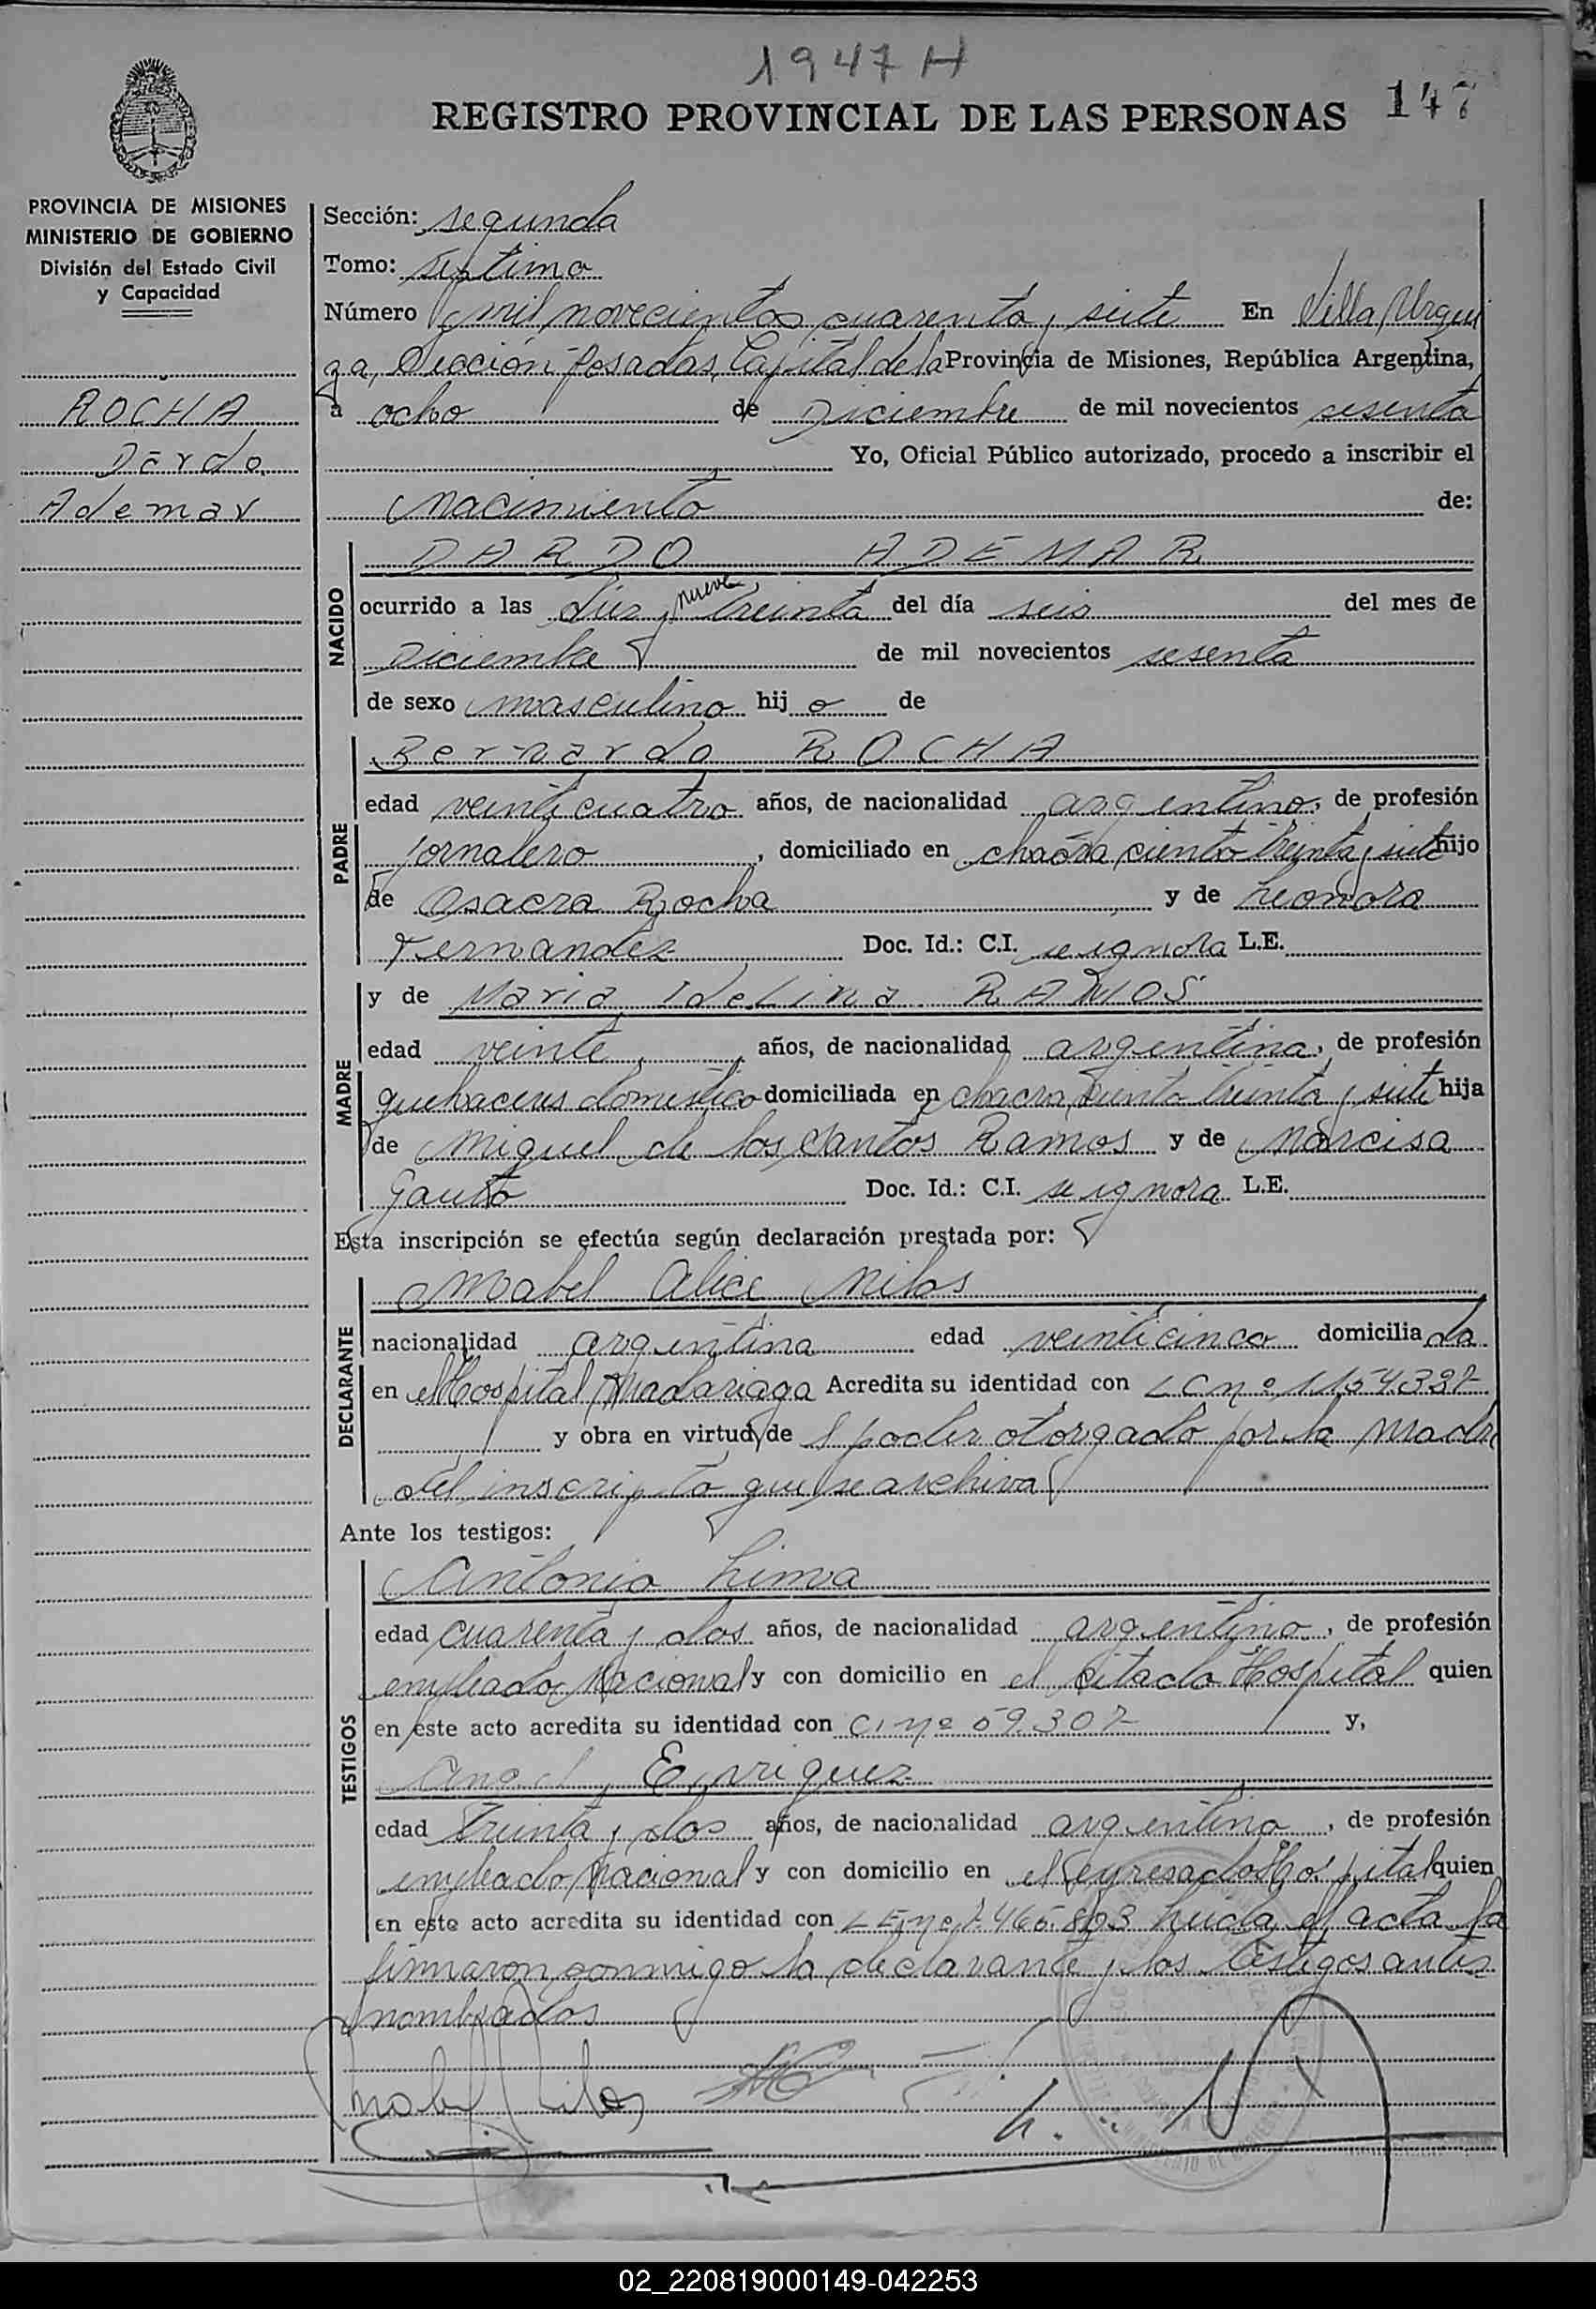 1947 H
REGISTRO PROVINCIAL DE LAS PERSONAS 147
PROVINCIA DE MISIONES
MINISTERIO DE GOBIERNO
División del Estado Civil
y Capacidad
ROCHA
Dardo
Ademar
Sección: segunda
Tomo: septimo
Número mil novecientos cuarenta y siete En Villa Urqui
za, Sección Posadas, Capital de la Provincia de Misiones, República Argentina,
a ocho de Diciembre de mil novecientos sesenta
Yo, Oficial Público autorizado, procedo a inscribir el
Nacimiento de:
NACIDO
DARDO ADEMAR
nueve
ocurrido a las diez y treinta del día seis del mes de
Diciembre de mil novecientos sesenta
de sexo masculino hij o de
PADRE
Bernardo ROCHA
edad veinticuatro años, de nacionalidad argentino, de profesión
jornalero, domiciliado en chacra ciento treinta y siete hijo
de Osacra Rocha y de Leonora
Fernandez Doc. Id.: C.I. se ignora L.E.
MADRE
y de Maria Idelina RAMOS
edad veinte, años, de nacionalidad argentina, de profesión
quehaceres domestico domiciliada en chacra ciento treinta y siete hija
de Miguel de los Santos Ramos y de Narcisa
Gauto Doc. Id.: C.I. se ignora L.E.
Esta inscripción se efectúa según declaración prestada por:
DECLARANTE
Mabel Alice Milos
nacionalidad argentina edad veinticinco domicilia da
en el Hospital Madariaga Acredita su identidad con LC nº 1154337
y obra en virtud de l poder otorgado por la madre
del inscripto que se archiva
Ante los testigos:
TESTIGOS
Antonio Lima
edad cuarenta y dos años, de nacionalidad argentino, de profesión
empleado Nacional y con domicilio en el citado Hospital quien
en este acto acredita su identidad con CI nº 59.307 y,
Angel Enriquez
edad treinta y dos años, de nacionalidad argentino, de profesión
empleado Nacional y con domicilio en el expresado Hospital quien
en este acto acredita su identidad con LE nº 7.465.803 leida el acta la
firmaron conmigo la declarante y los testigos antes
nombrados
Mabel Milos
02_220819000149-042253